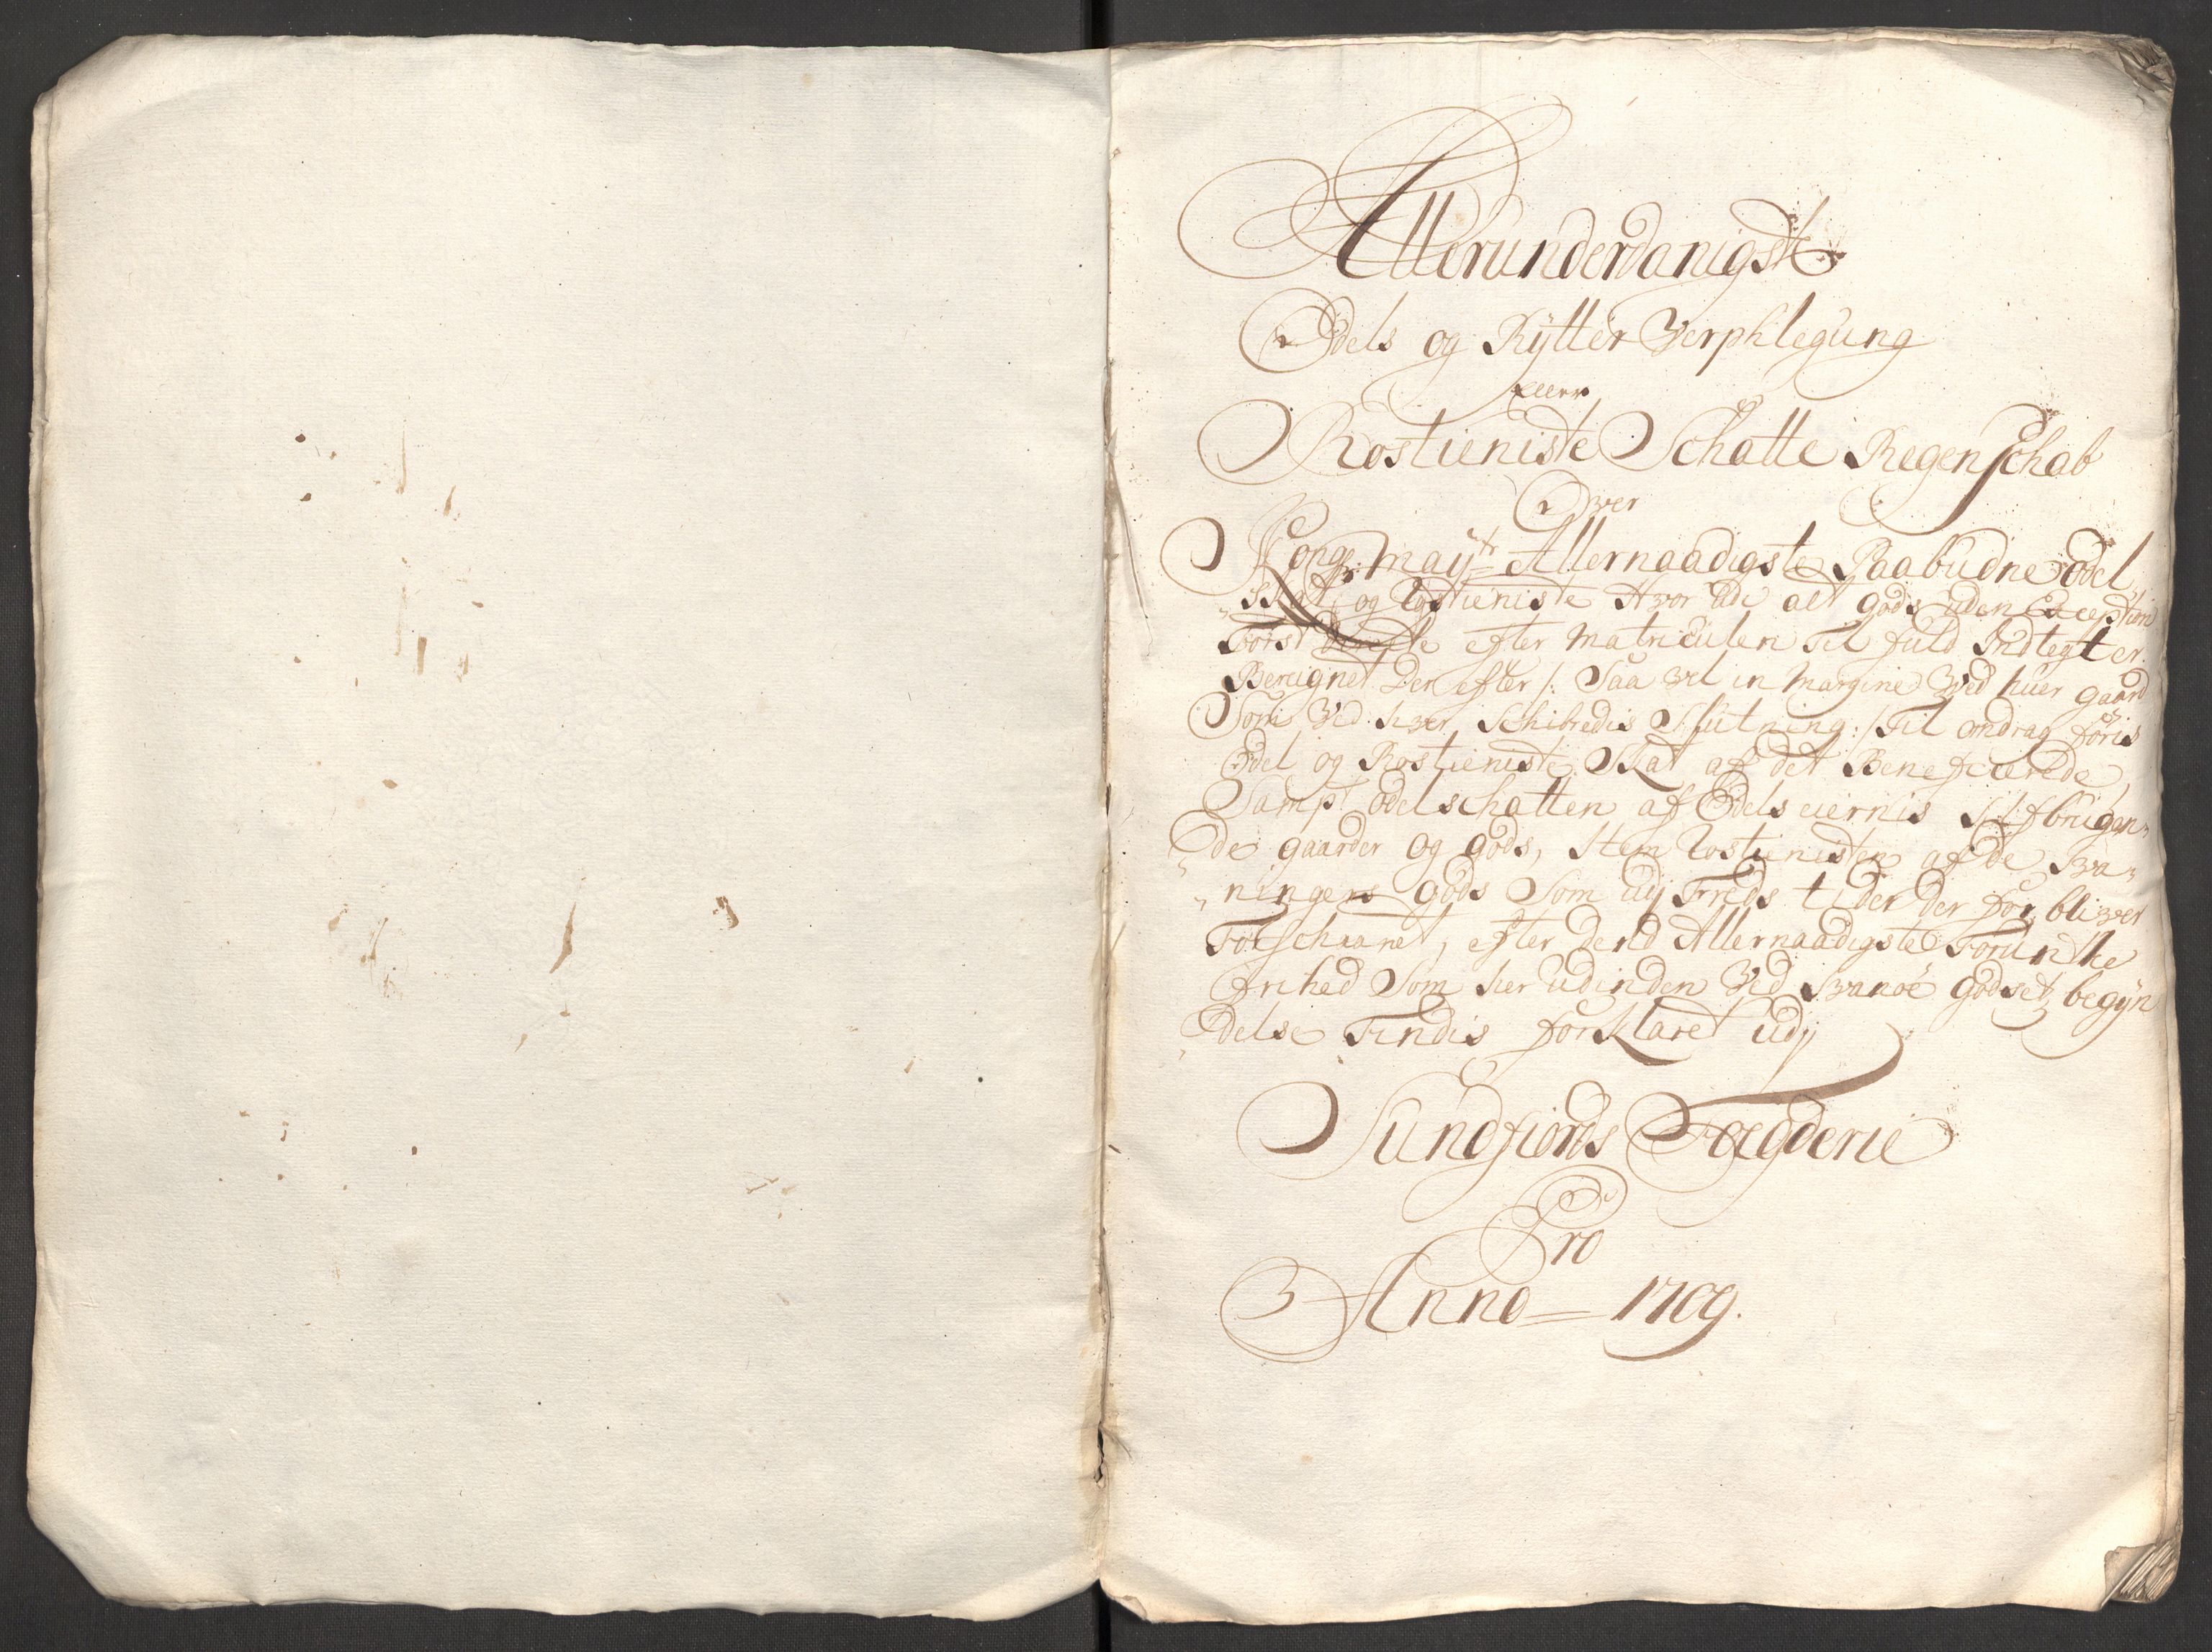 Allerunderdanigste
Odels og Rÿtter Verphlegung
Eller
Rostieniste Schatte Regenschab
Over
Kong: Maÿts Allernaadigste Paabudne Odel
Skat, og Rostieniste Hvor udi alt gods uden Exception
Først efter Matriculen Til fuld Indtegter
Beregnet Der efter /: Saa vel in Margine Ved huer gaard
Som Ved hver Schibredis Slutning :/ Til omdrag føris
Odel og Rostieniste Skat af det Beneficerede
Sampt odelschatten af Odels eiernis Selfbrugen-
de gaarder og gods, Item Rostienisten af de Sva-
ningers gods Som udj Freds tider der for bliver
Forschaanet, efter dend Allernaadigste Forunthe
frihed Som her udinden Ved Svanøe Godsets begÿn
delse Findis forklaret udj
Sundfiords Fogderie
Pro
Anno 1709.